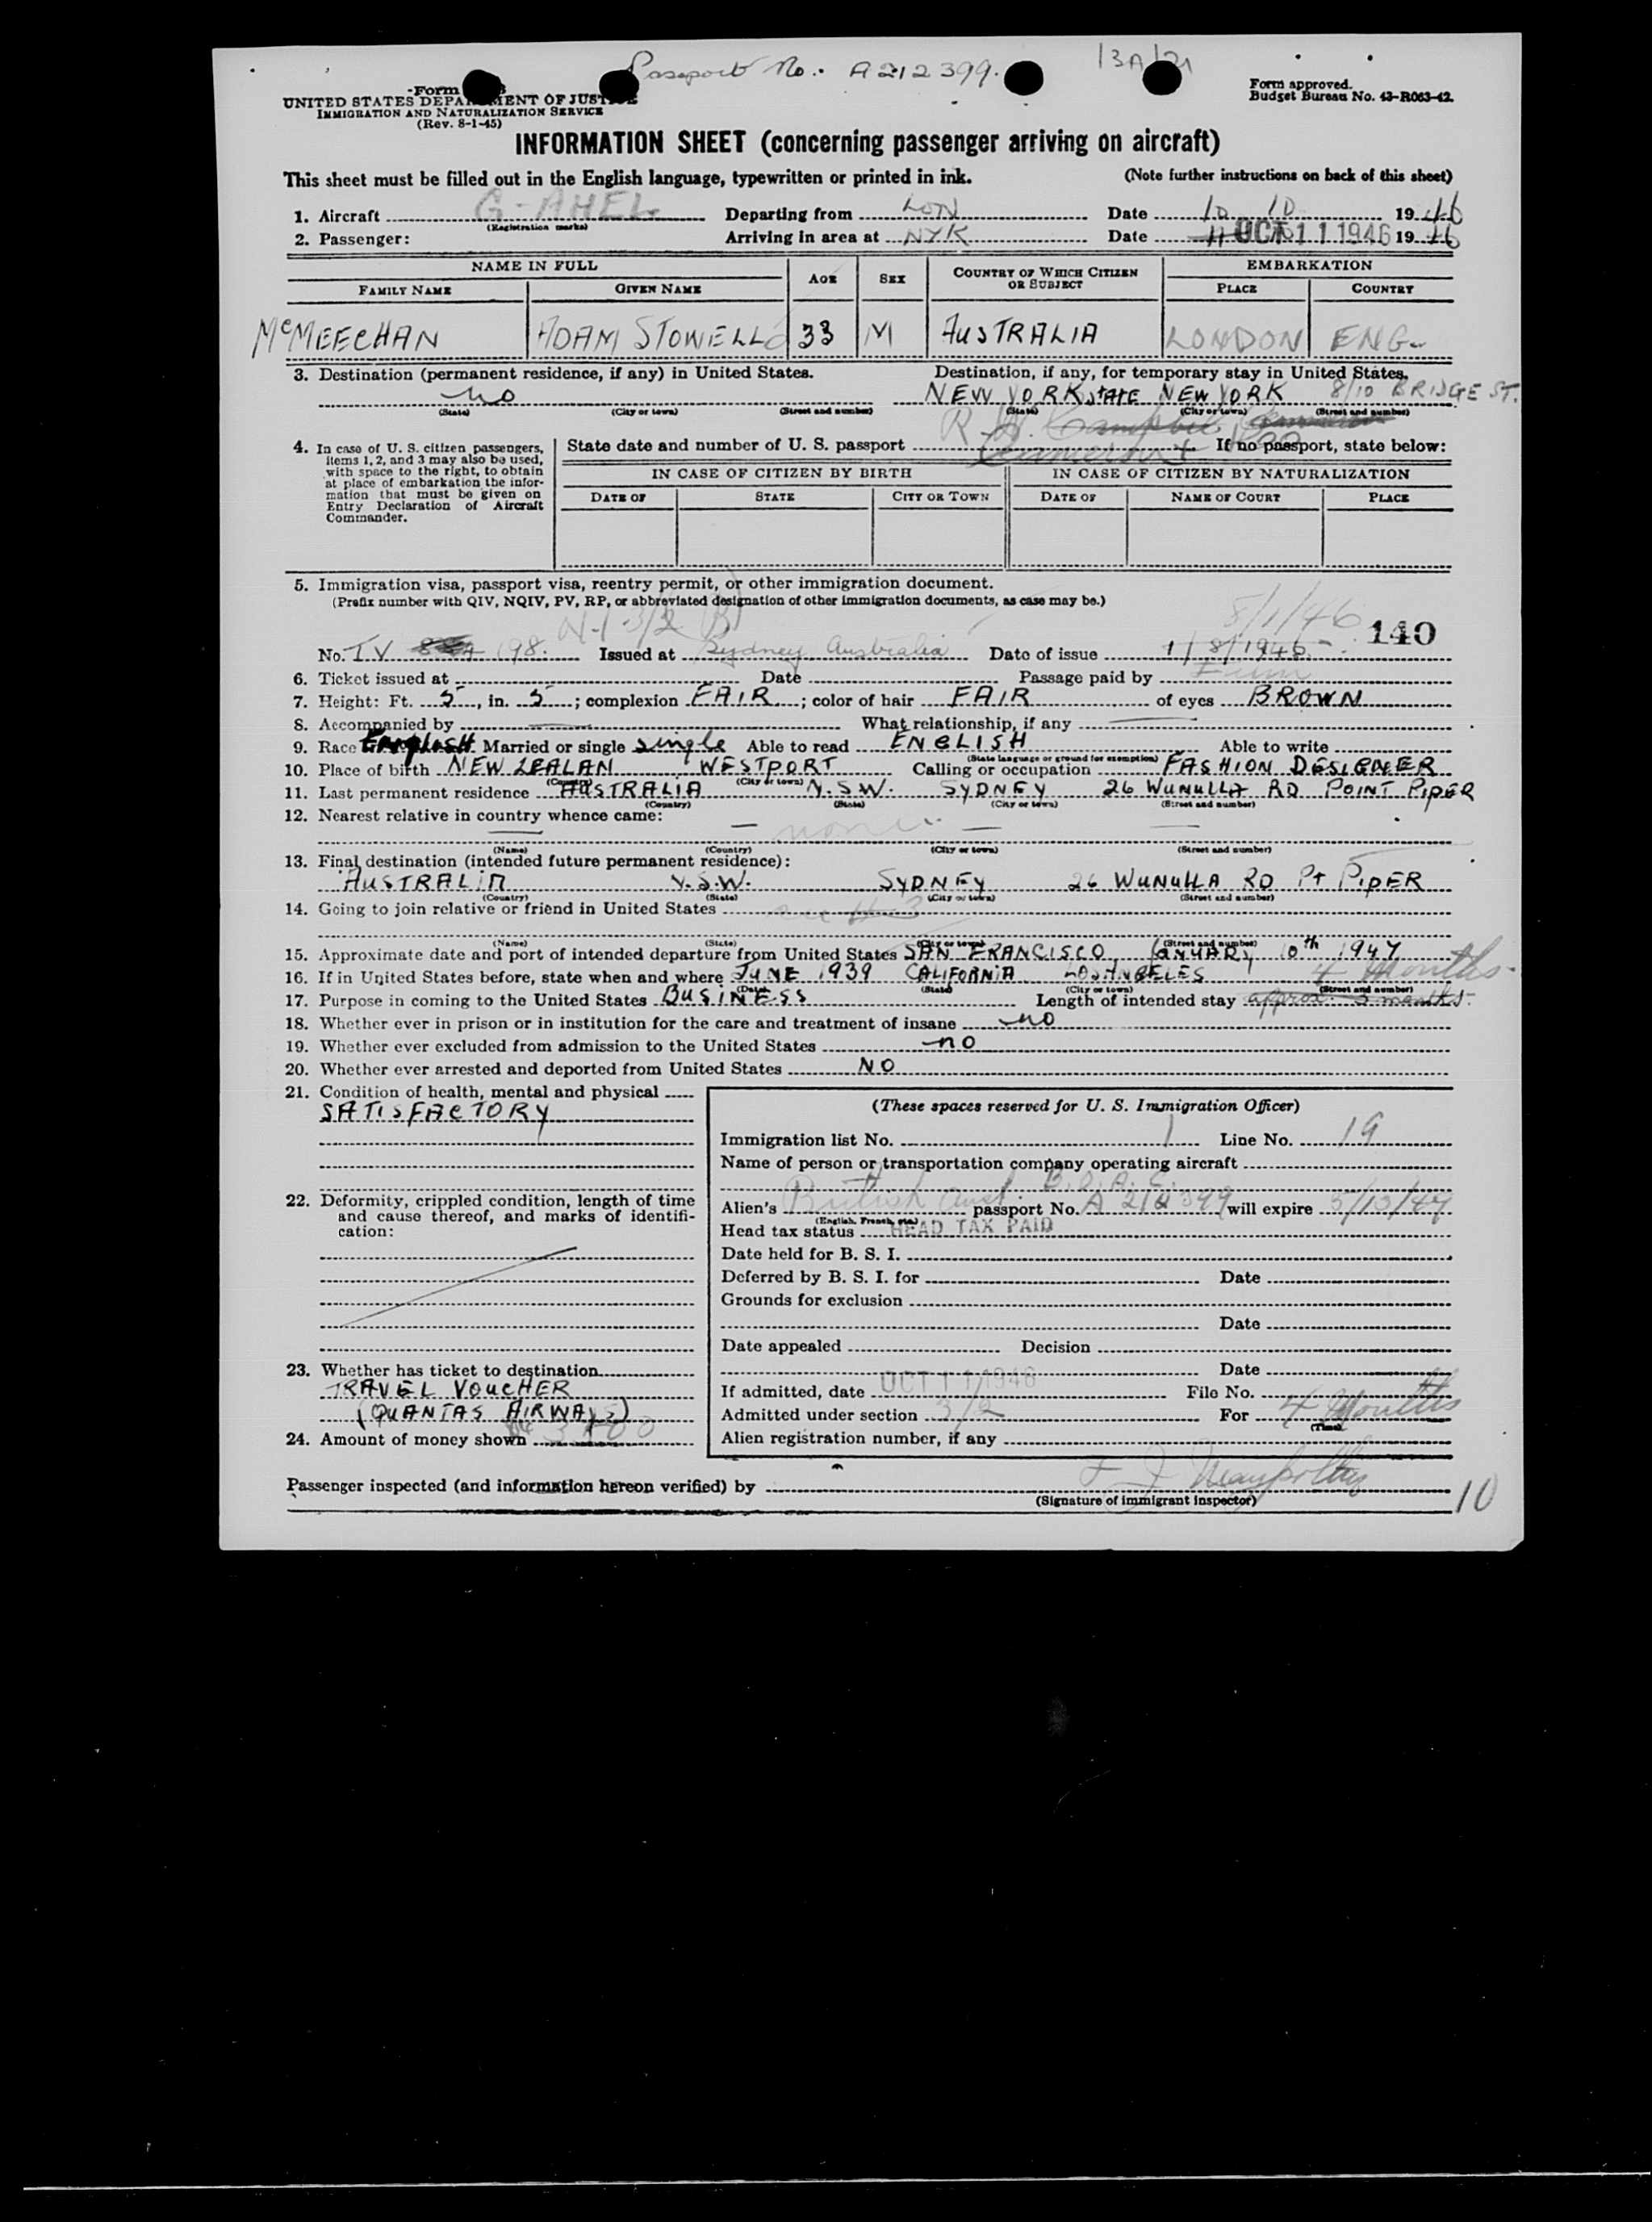 Passport No. A212399. 13A/21
Form
UNITED STATES DEPARTMENT OF JUSTICE
IMMIGRATION AND NATURALIZATION SERVICE
(Rev. 8-1-45)
Form approved.
Budget Bureau No. 43-R063-42.
INFORMATION SHEET (concerning passenger arriving on aircraft)
This sheet must be filled out in the English language, typewritten or printed in ink. (Note further instructions on back of this sheet)
1. Aircraft G-AHEL Departing from LON Date 10 10 1946
(Registration marks)
2. Passenger: Arriving in area at NYK Date 11 OCT 11 1946 1946
NAME IN FULL AGE SEX COUNTRY OF WHICH CITIZEN OR SUBJECT EMBARKATION
FAMILY NAME GIVEN NAME PLACE COUNTRY
McMEECHAN ADAM STOWELL 33 M AUSTRALIA LONDON ENG.
3. Destination (permanent residence, if any) in United States. Destination, if any, for temporary stay in United States.
no NEW YORK STATE NEW YORK 8/10 BRIDGE ST.
(State) (City or town) (Street and number) (State) (City or town) (Street and number)
4. In case of U. S. citizen passengers, items 1, 2, and 3 may also be used, with space to the right, to obtain at place of embarkation the information that must be given on Entry Declaration of Aircraft Commander.
State date and number of U. S. passport If no passport, state below:
IN CASE OF CITIZEN BY BIRTH IN CASE OF CITIZEN BY NATURALIZATION
DATE OF STATE CITY OR TOWN DATE OF NAME OF COURT PLACE
5. Immigration visa, passport visa, reentry permit, or other immigration document.
(Prefix number with QIV, NQIV, PV, RP, or abbreviated designation of other immigration documents, as case may be.)
8/1/46 140
No. TV 198. Issued at Sydney Australia Date of issue 1/8/1946
6. Ticket issued at Date Passage paid by Firm
7. Height: Ft. 5, in. 5; complexion FAIR; color of hair FAIR of eyes BROWN
8. Accompanied by What relationship, if any
9. Race English Married or single single Able to read ENGLISH Able to write
(State language or ground for exemption)
10. Place of birth NEW ZEALAN WESTPORT Calling or occupation FASHION DESIGNER
(Country) (City or town)
11. Last permanent residence AUSTRALIA N.S.W. SYDNEY 26 WUNULLA RD POINT PIPER
(Country) (State) (City or town) (Street and number)
12. Nearest relative in country whence came:
none
(Name) (Country) (City or town) (Street and number)
13. Final destination (intended future permanent residence):
AUSTRALIA N.S.W. SYDNEY 26 WUNULLA RD Pt PIPER
(Country) (State) (City or town) (Street and number)
14. Going to join relative or friend in United States
(Name) (State) (City or town) (Street and number)
15. Approximate date and port of intended departure from United States SAN FRANCISCO JANUARY 10th 1947
16. If in United States before, state when and where JUNE 1939 CALIFORNIA LOS ANGELES
4 Months
(Date) (State) (City or town) (Street and number)
17. Purpose in coming to the United States BUSINESS Length of intended stay approx. 3 months
18. Whether ever in prison or in institution for the care and treatment of insane no
19. Whether ever excluded from admission to the United States no
20. Whether ever arrested and deported from United States NO
21. Condition of health, mental and physical
SATISFACTORY
22. Deformity, crippled condition, length of time and cause thereof, and marks of identification:
23. Whether has ticket to destination
TRAVEL VOUCHER
(QUANTAS AIRWAYS)
24. Amount of money shown
(These spaces reserved for U. S. Immigration Officer)
Immigration list No. 1 Line No. 19
Name of person or transportation company operating aircraft
B.O.A.C.
Alien's British Aust. passport No. A 212399 will expire 5/13/47
(English, French, etc.)
Head tax status HEAD TAX PAID
Date held for B. S. I.
Deferred by B. S. I. for Date
Grounds for exclusion
Date
Date appealed Decision
Date
If admitted, date OCT 11 1946 File No.
Admitted under section 3/2 For 4 Months
(Time)
Alien registration number, if any
Passenger inspected (and information hereon verified) by
(Signature of immigrant inspector)
10